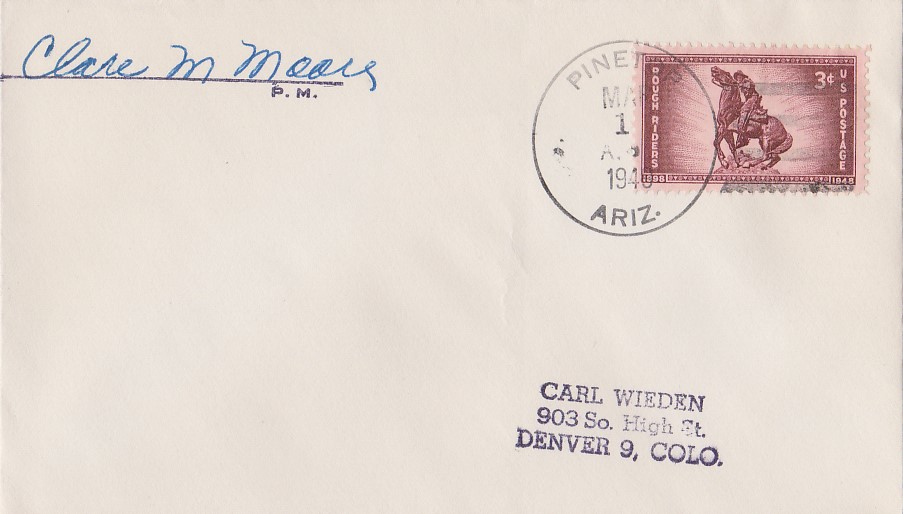 Clare M Moore
P. M.
PINET
MA
1
A.
194
ARIZ.
ROUGH RIDERS
3¢
US POSTAGE
1898
1948
CARL WIEDEN
903 So. High St.
DENVER 9, COLO.